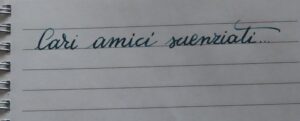 Cari amici scienziati...